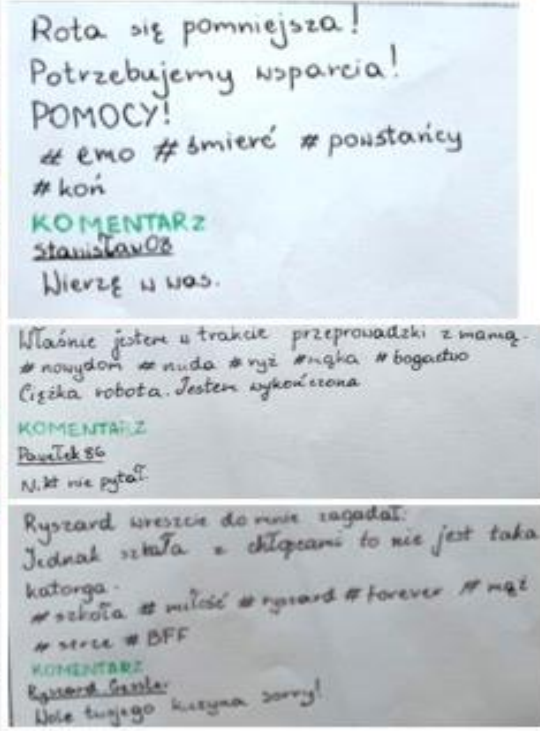 Rota się pomniejsza!
Potrzebujemy wsparcia!
POMOCY!
# emo # śmierć # powstańcy
# koń
KOMENTARZ
Stanisław08
Wierzę w was.
Właśnie jestem w trakcie przeprowadzki z mamą.
# nowydom # nuda # ryż # mąka # bogactwo
Ciężka robota. Jestem wykończona
KOMENTARZ
Pawełek86
Nikt nie pytał.
Ryszard wreszcie do mnie zagadał.
Jednak szkoła z chłopcami to nie jest taka
katorga.
# szkoła # miłość # ryszard # forever # mąż
# serce # BFF
KOMENTARZ
Ryszard
Wolę twojego kuzyna sorry!